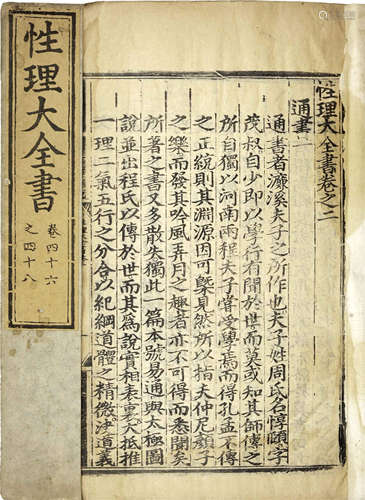 性理大全書
卷四十六
之四十八
性理大全書卷之二
通書一
通書者濂溪夫子之所作也夫子姓周氏名惇頤字
茂叔自少即以學行有聞於世而莫或知其師傳之
所自獨以河南兩程夫子嘗受學焉而得孔孟不傳
之正統則其淵源因可槩見然所以指夫仲尼顏子
之樂而發其吟風弄月之趣者亦不可得而悉聞矣
所著之書又多散失獨此一篇本號易通與太極圖
說並出程氏以傳於世而其為說實相表裏大抵推
一理二氣五行之分合以紀綱道體之精微決道義